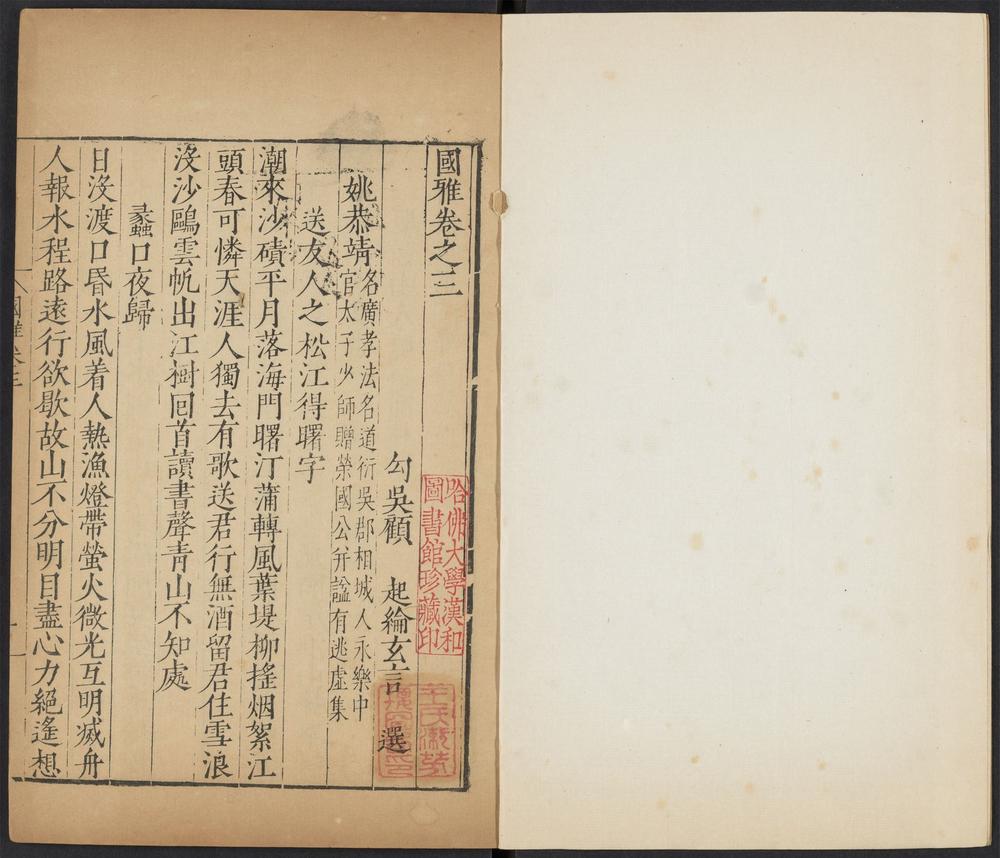 國雅卷之三
勾吳顧 起綸玄言 選
姚恭靖名廣孝法名道衍吳郡相城人永樂中
官太子少師贈榮國公并謚有逃虛集
送友人之松江得曙字
潮來沙磧平月落海門曙汀蒲轉風葉堤柳搖烟絮江
頭春可憐天涯人獨去有歌送君行無酒留君住雪浪
沒沙鷗雲帆出江樹回首讀書聲青山不知處
蠡口夜歸
日沒渡口昬水風着人熱漁燈帶螢火微光互明滅舟
人報水程路遠行欲歇故山不分明目盡心力絕遙想
國雅卷三
一
哈佛大學漢和
圖書館珍藏印